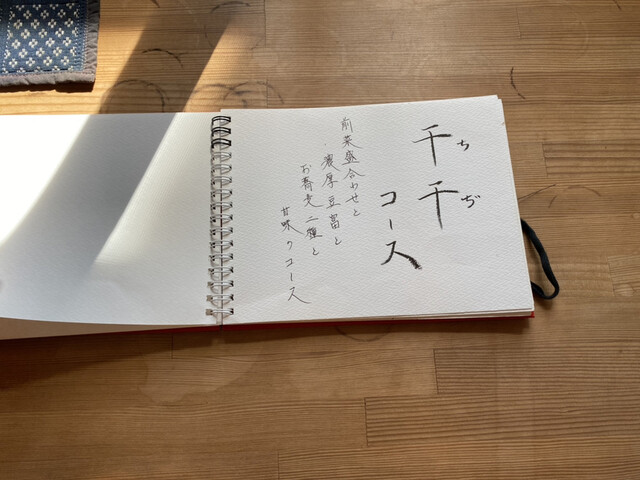 千千
ちぢ
コース
前菜盛合わせと
濃厚豆富と
お蕎麦二種と
甘味のコース